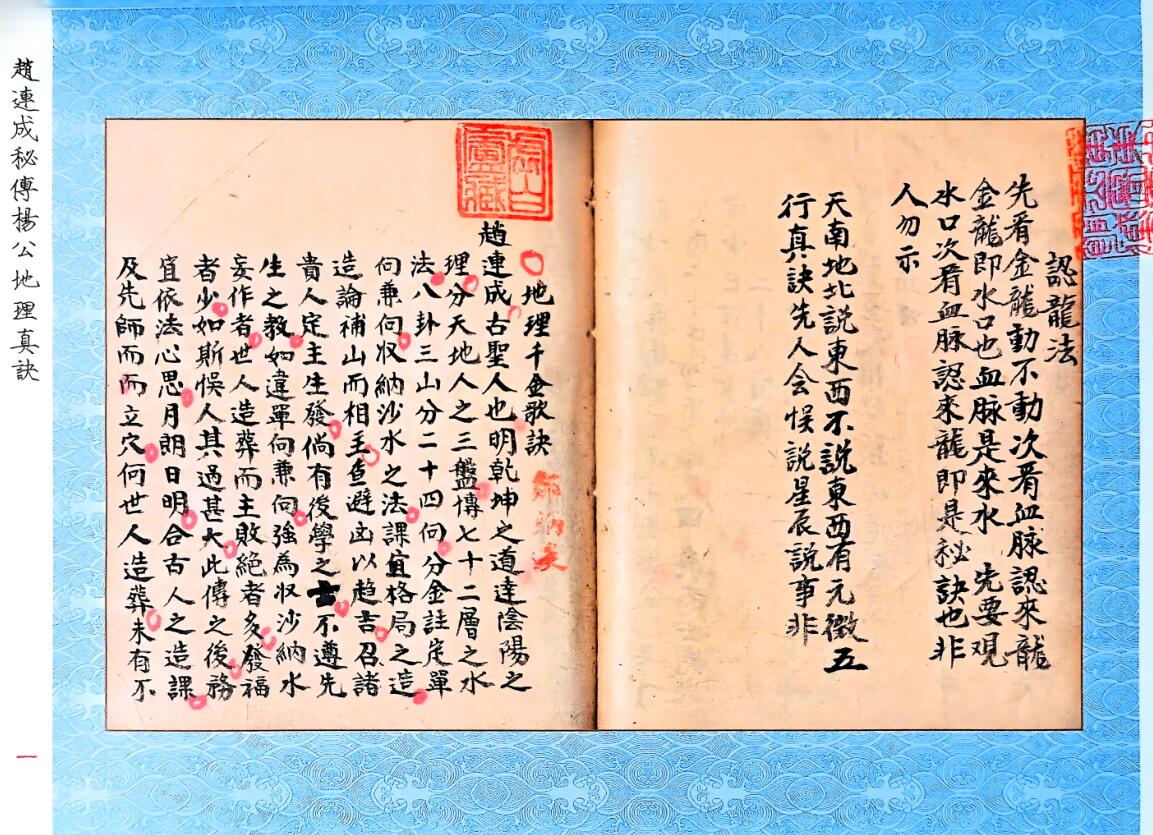 趙連成秘傳楊公地理真訣
一
認龍法
先看金龍動不動次看血脉認來龍
金龍即水口也血脉是來水 先要观
水口次看血脉認來龍即是秘訣也非
人勿示
天南地北説東西不説東西有元微五
行真訣先人会悮説星辰説事非
地理千金歌訣
趙連成古聖人也明乾坤之道達陰陽之
理分天地人之三盤傳七十二層之水
法八卦三山分二十四向分金註定單
向兼向収納沙水之法課宜格局之造
造論補山而相主查避凶以趋吉召諸
貴人定主生發倘有後學之士不遵先
生之教如違單向兼向強為収沙納水
妄作者世人造葬而主敗絶者多發福
者少如斯悮人其過甚大此傳之後務
宜依法心思月朗日明合古人之造課
及先師而而立穴何世人造葬未有不